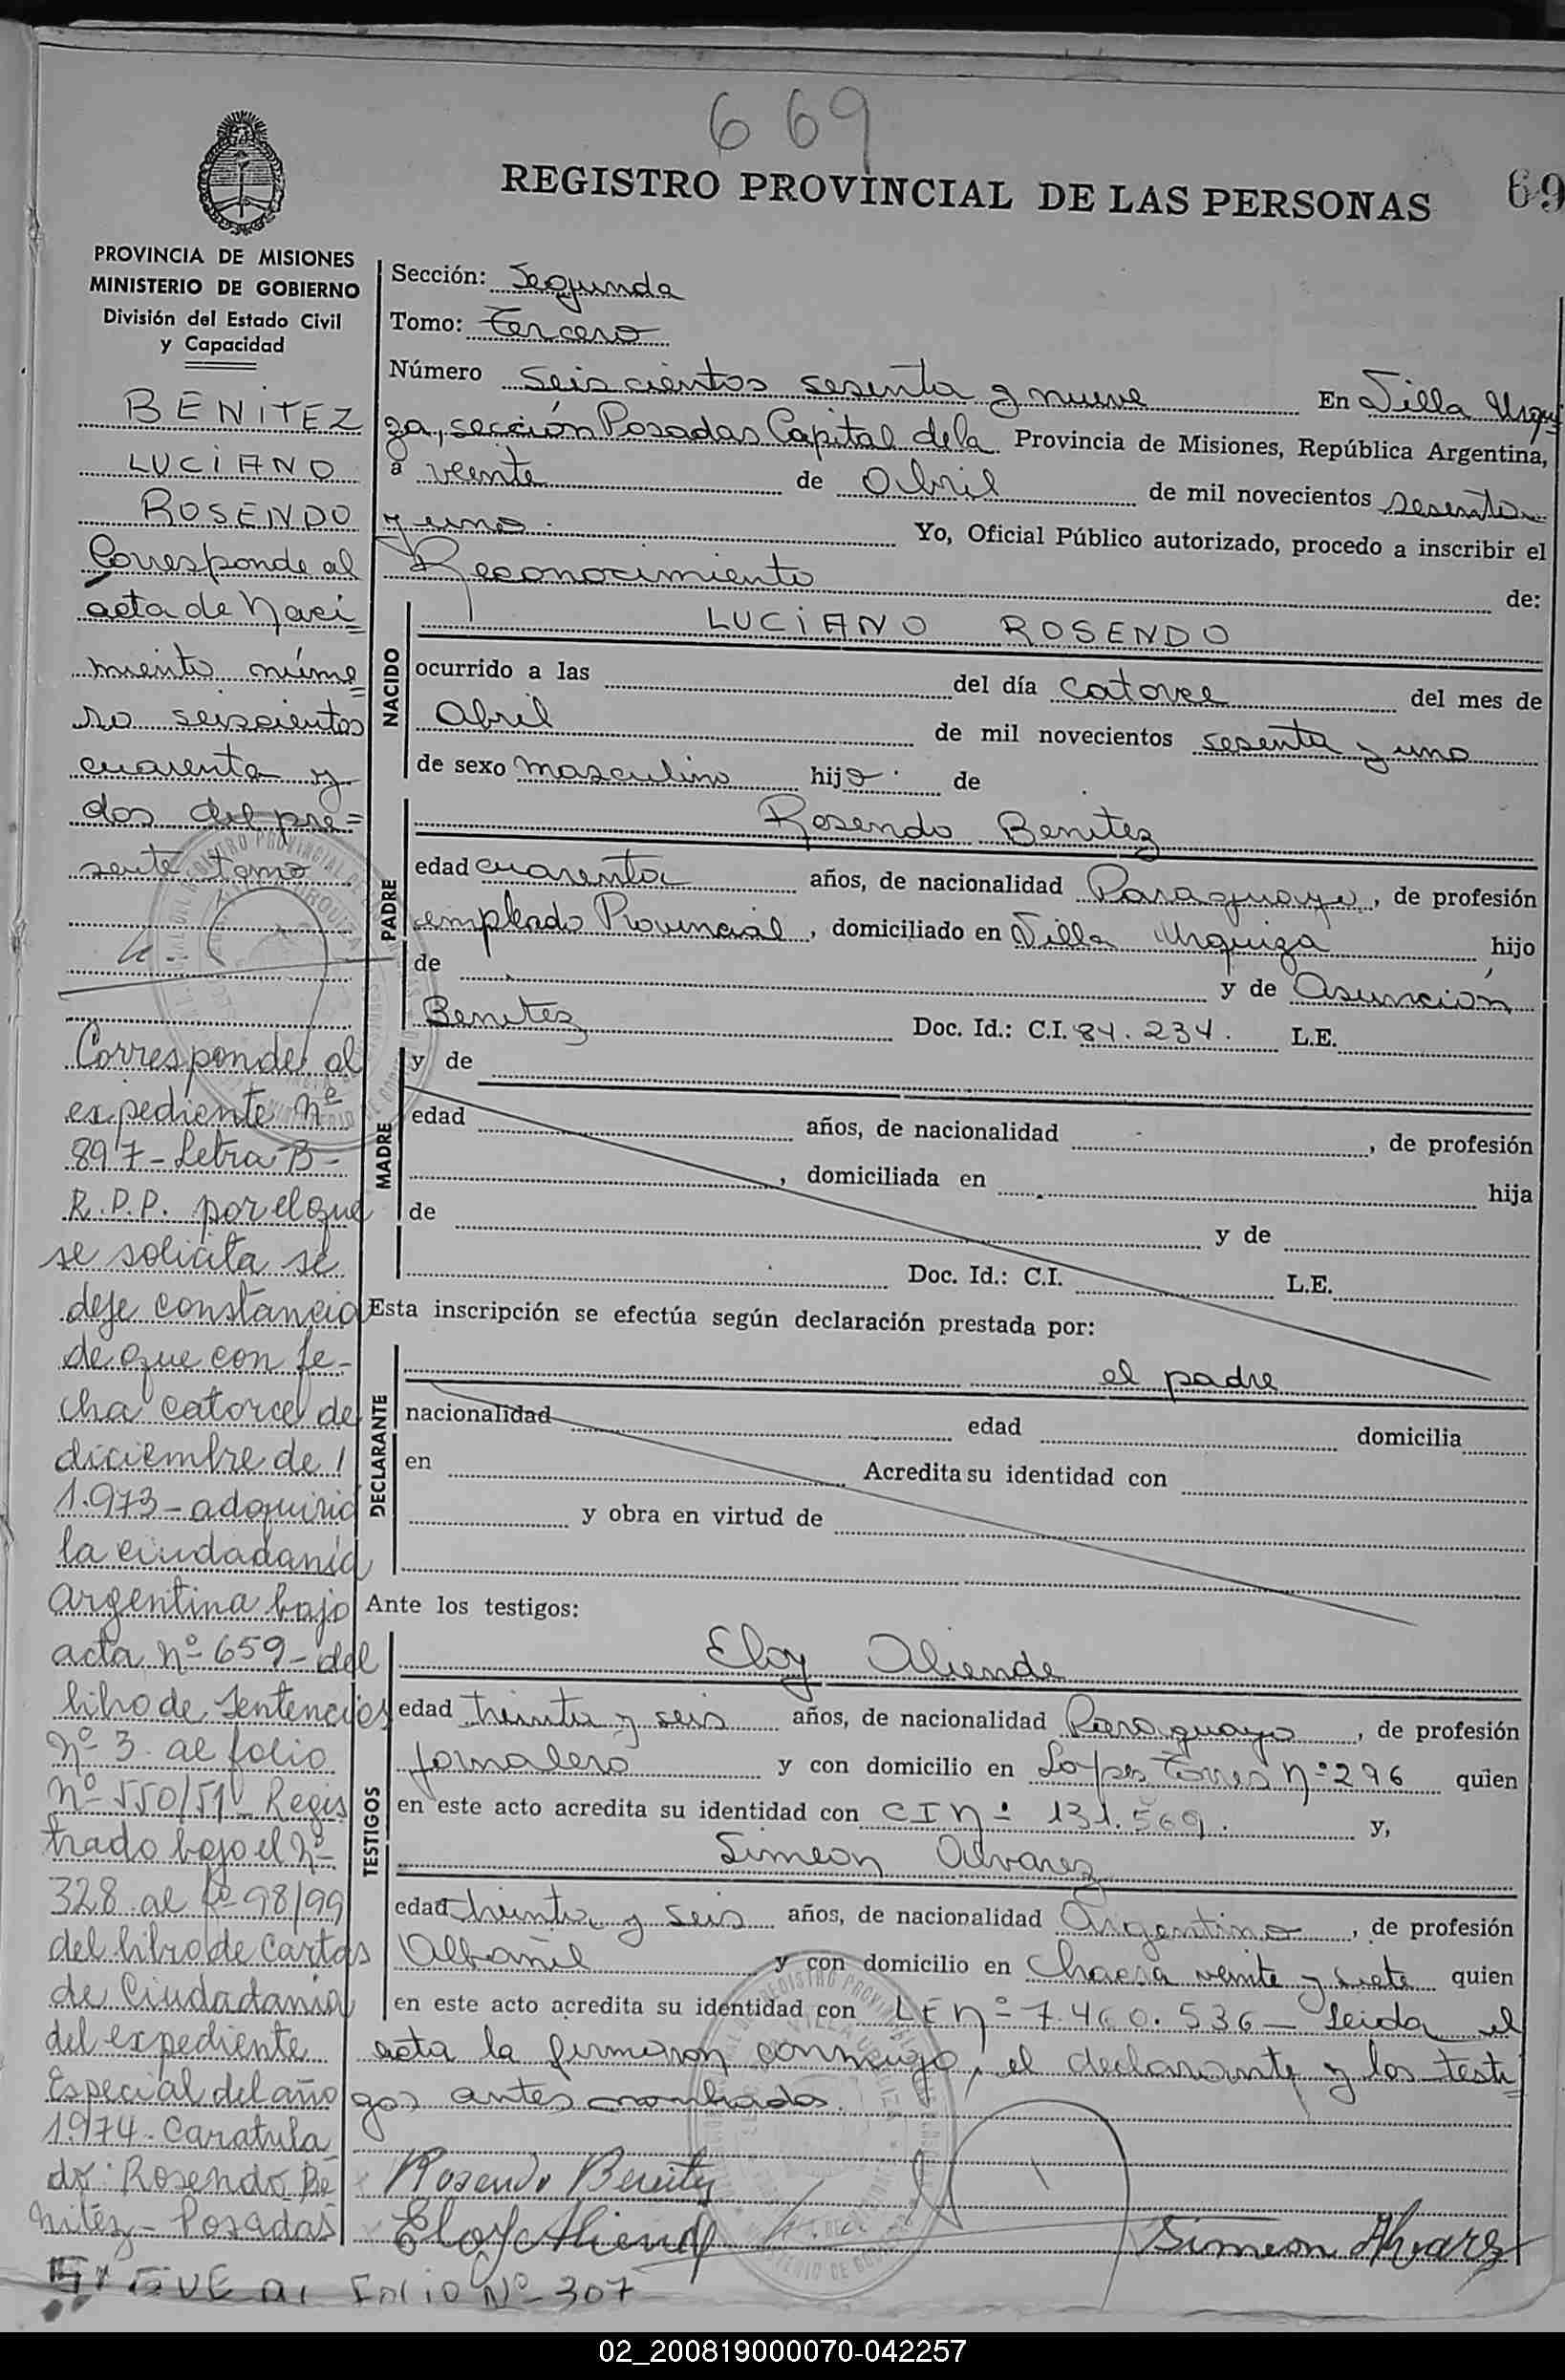 669
REGISTRO PROVINCIAL DE LAS PERSONAS
69
PROVINCIA DE MISIONES
MINISTERIO DE GOBIERNO
División del Estado Civil
y Capacidad
BENITEZ
LUCIANO
ROSENDO
Corresponde al
acta de Naci=
miento núme=
ro seiscientos
cuarenta y
dos del pre=
sente tomo
Corresponde al
expediente Nº
897-Letra B-
R.P.P. por el que
se solicita se
deje constancia
de que con fe-
cha catorce de
diciembre de
1.973-adquirió
la ciudadanía
argentina bajo
acta nº 659-del
libro de Sentencias
nº 3 al folio
nº 550/51 Regis
trado bajo el Nº
328 al fº 98/99
del libro de Cartas
de Ciudadanía
del expediente
Especial del año
1.974-Caratula
do: Rosendo Be
nitez-Posadas
Sección: Segunda
Tomo: Tercero
Número Seiscientos sesenta y nueve En Villa Urqui
za, sección Posadas Capital de la Provincia de Misiones, República Argentina,
a veinte de Abril de mil novecientos sesenta
y uno. Yo, Oficial Público autorizado, procedo a inscribir el
Reconocimiento de:
NACIDO
LUCIANO ROSENDO
ocurrido a las del día catorce del mes de
Abril de mil novecientos sesenta y uno
de sexo masculino hijo de
PADRE
Rosendo Benitez
edad cuarenta años, de nacionalidad Paraguayo, de profesión
empleado Provincial, domiciliado en Villa Urquiza hijo
de y de Asunción
Benitez Doc. Id.: C.I. 84.234. L.E.
MADRE
y de
edad años, de nacionalidad , de profesión
, domiciliada en hija
de y de
Doc. Id.: C.I. L.E.
Esta inscripción se efectúa según declaración prestada por:
DECLARANTE
el padre
nacionalidad edad domicilia
en Acredita su identidad con
y obra en virtud de
Ante los testigos:
TESTIGOS
Eloy Aliende
edad treinta y seis años, de nacionalidad Paraguayo, de profesión
jornalero y con domicilio en Lopes Torres nº 296 quien
en este acto acredita su identidad con CI nº 131.569. y,
Simeon Alvarez
edad treinta y seis años, de nacionalidad Argentino, de profesión
Albañil y con domicilio en Chacra veinte y siete quien
en este acto acredita su identidad con LE nº 7.460.536- Leida el
acta la firmaron conmigo, el declarante y los testi
gos antes nombrados.
Rosendo Benitez
Eloy Aliende
Simeon Alvarez
SIGUE AL FOLIO Nº 307
02_200819000070-042257